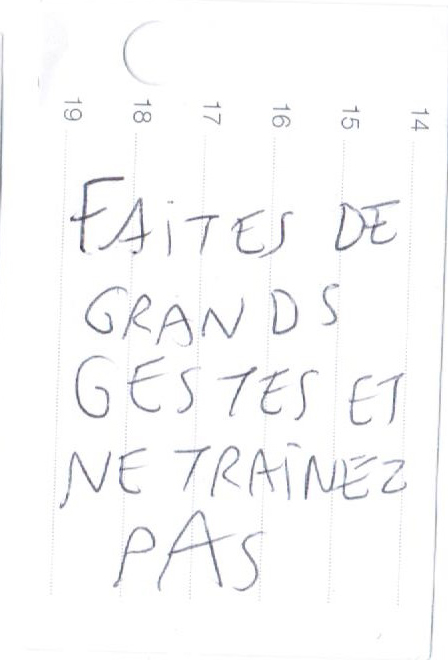 19 18 17 16 15 14
FAiTES DE
GRANDS
GESTES ET
NE TRAÎNEZ
PAS